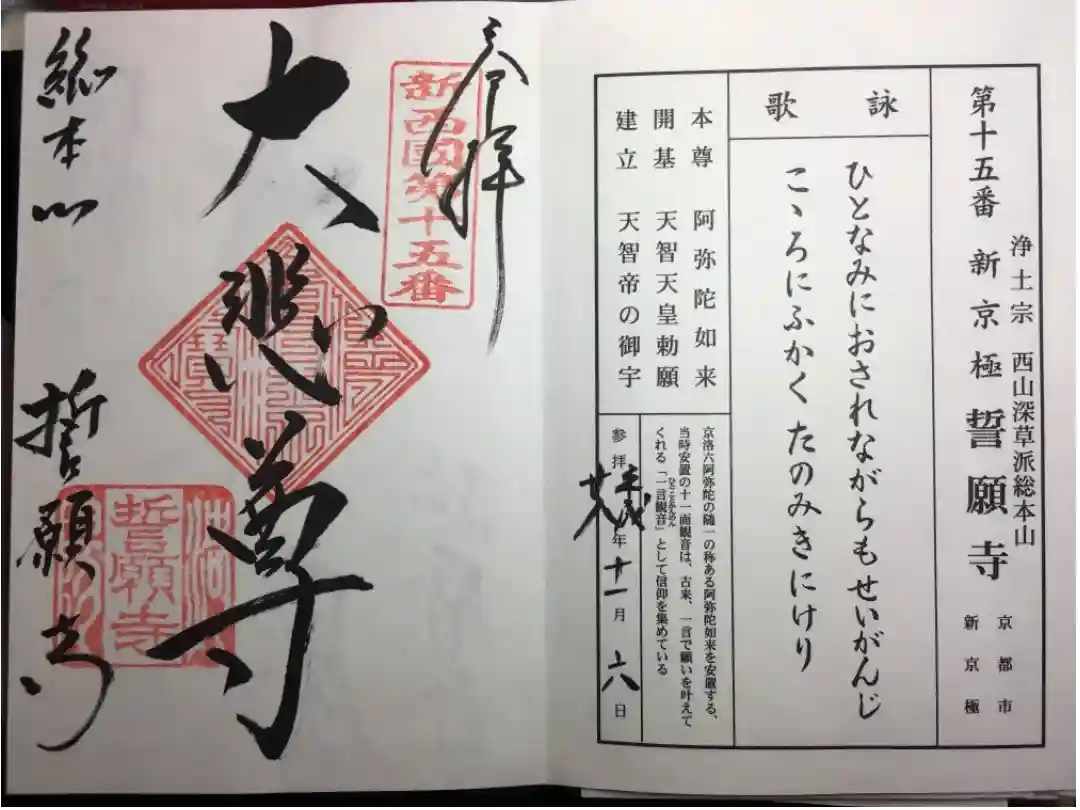 第十五番 新京極 誓願寺
浄土宗 西山深草派総本山
京都市
新京極
詠歌
ひとなみにおされながらもせいがんじ
こゝろにふかくたのみきにけり
本尊 阿弥陀如来
開基 天智天皇勅願
建立 天智帝の御宇
京洛六阿弥陀の随一の称ある阿弥陀如来を安置する、
当時安置の十一面観音は、古来、一言で願いを叶えて
くれる「一言観音」として信仰を集めている
ひとことかんのん
参拝 平成 廿八年 十一月 六日
奉拝
新西國第十五番
大悲尊
総本山 誓願寺
誓願寺